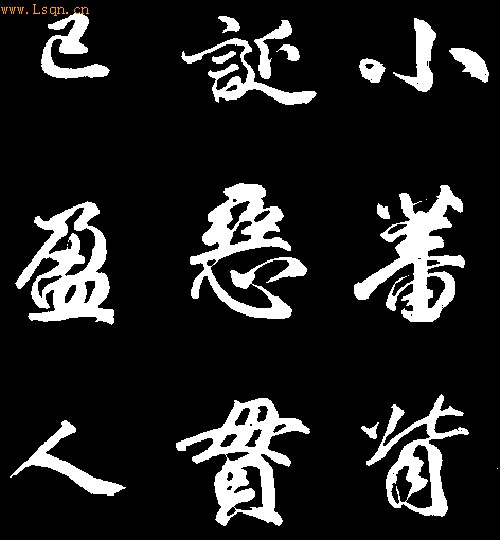 www.Lsqn.cn
小蕃背
誕惡貫
已盈人